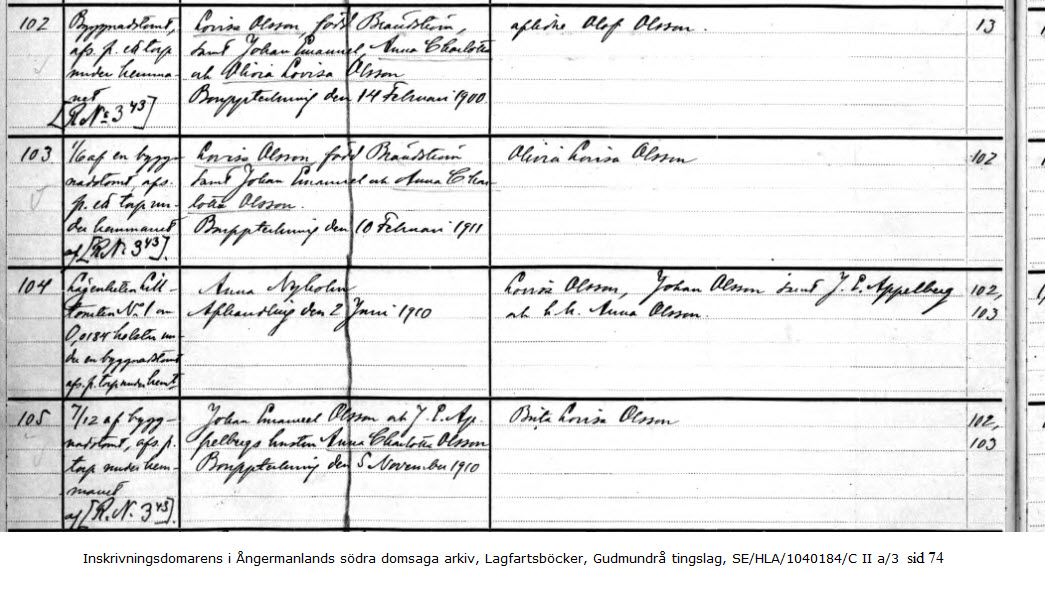 102 Byggnadstomt, Lovisa Olsson, född Brändström, aflidne Olof Olsson. 13
afs. p. ett torp samt Johan Emanuel, Anna Charlotta
under hemma- och Olivia Lovisa Olsson
net Bouppteckning den 14 Februari 1900.
[R. Nº 3 43]
103 1/6 af en bygg- Lovisa Olsson, född Brändström Olivia Lovisa Olsson 102
nadstomt, afs. samt Johan Emanuel och Anna Char-
p. ett torp un- lotta Olsson.
der hemmanet Bouppteckning den 10 Februari 1911
af [R. Nº 3 43].
104 Lägenheten Lill- Anna Nyholm Lovisa Olsson, Johan Olsson samt J. E. Appelberg 102,
tomten Nº 1 om Afhandling den 2 Juni 1910 och h. h. Anna Olsson. 103
0,0184 hektar un-
der en byggnadstomt
afs. p. torp under hemt
105 7/12 af bygg- Johan Emanuel Olsson och J. E. Ap- Brita Lovisa Olsson 102,
nadstomt, afs. p. pelbergs hustru Anna Charlotta Olsson 103
torp under hem- Bouppteckning den 5 November 1910
manet
af [R. N. 3 43].
Inskrivningsdomarens i Ångermanlands södra domsaga arkiv, Lagfartsböcker, Gudmundrå tingslag, SE/HLA/1040184/C II a/3 sid 74